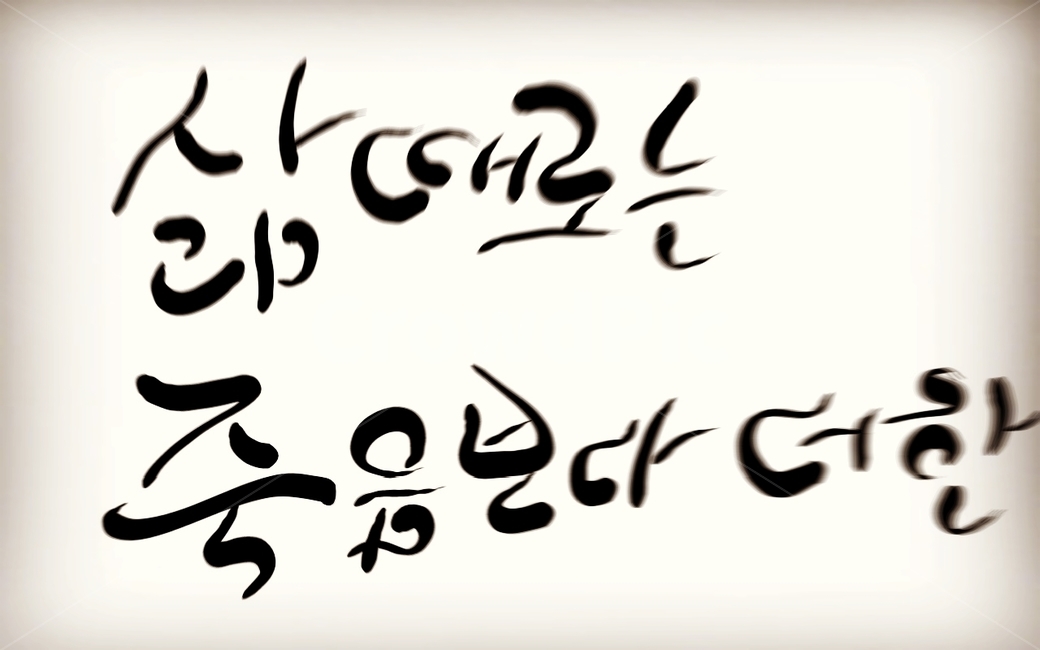 삶 때로는
죽음보다 더한